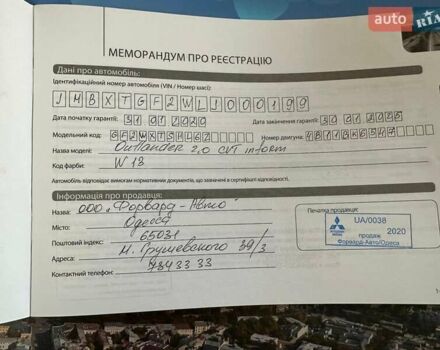 auto RIA
МЕМОРАНДУМ ПРО РЕЄСТРАЦІЮ
Дані про автомобіль:
Ідентифікаційний номер автомобіля (VIN / Номер шасі):
JMBXTGF2WLJ000199
Дата початку гарантії: 31 01 2020 Дата закінчення гарантії: 30 01 2025
Модельний код: GF2WXTSHL6Z Номер двигуна:
Назва моделі: Outlander 2.0 CVT inform
Код фарби: W13
Автомобіль відповідає вимогам нормативних документів, що зазначені в сертифікаті відповідності.
Інформація про продавця:
Назва: ООО "Форвард-Авто"
Місто: Одесса
Поштовий індекс: 65031
Адреса: М. Грушевского 39/3
Контактний телефон: 7343333
Печатка продавця:
UA/0038
продаж 2020
Форвард-Авто/Одеса